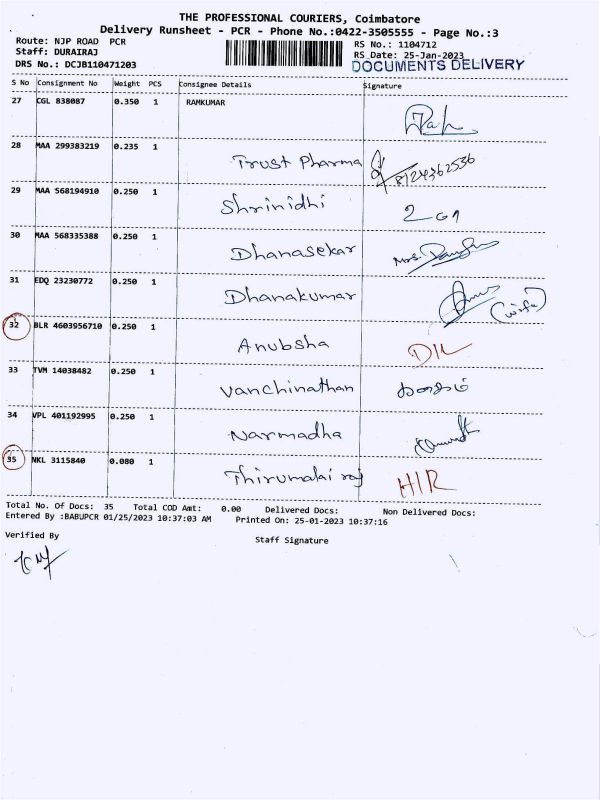 THE PROFESSIONAL COURIERS, Coimbatore
Delivery Runsheet - PCR - Phone No.:0422-3505555 - Page No.:3
Route: NJP ROAD PCR
RS No.: 1104712
Staff: DURAIRAJ
RS Date: 25-Jan-2023
DRS No.: DCJB110471203
DOCUMENTS DELIVERY
S No Consignment No Weight PCS Consignee Details Signature
27 CGL 838087 0.350 1 RAMKUMAR
28 MAA 299383219 0.235 1 Trust Pharma 8124362536
29 MAA 568194910 0.250 1 Shrinidhi
30 MAA 568335388 0.250 1 Dhanasekar Mrs.
31 EDQ 23230772 0.250 1 Dhanakumar (wife)
32 BLR 4603956710 0.250 1 Anubsha D/L
33 TVM 14038482 0.250 1 Vanchinathan
34 VPL 401192995 0.250 1 Narmadha
35 NKL 3115840 0.080 1 Thirumalai raj H/R
Total No. Of Docs: 35 Total COD Amt: 0.00 Delivered Docs: Non Delivered Docs:
Entered By :BABUPCR 01/25/2023 10:37:03 AM Printed On: 25-01-2023 10:37:16
Verified By
Staff Signature